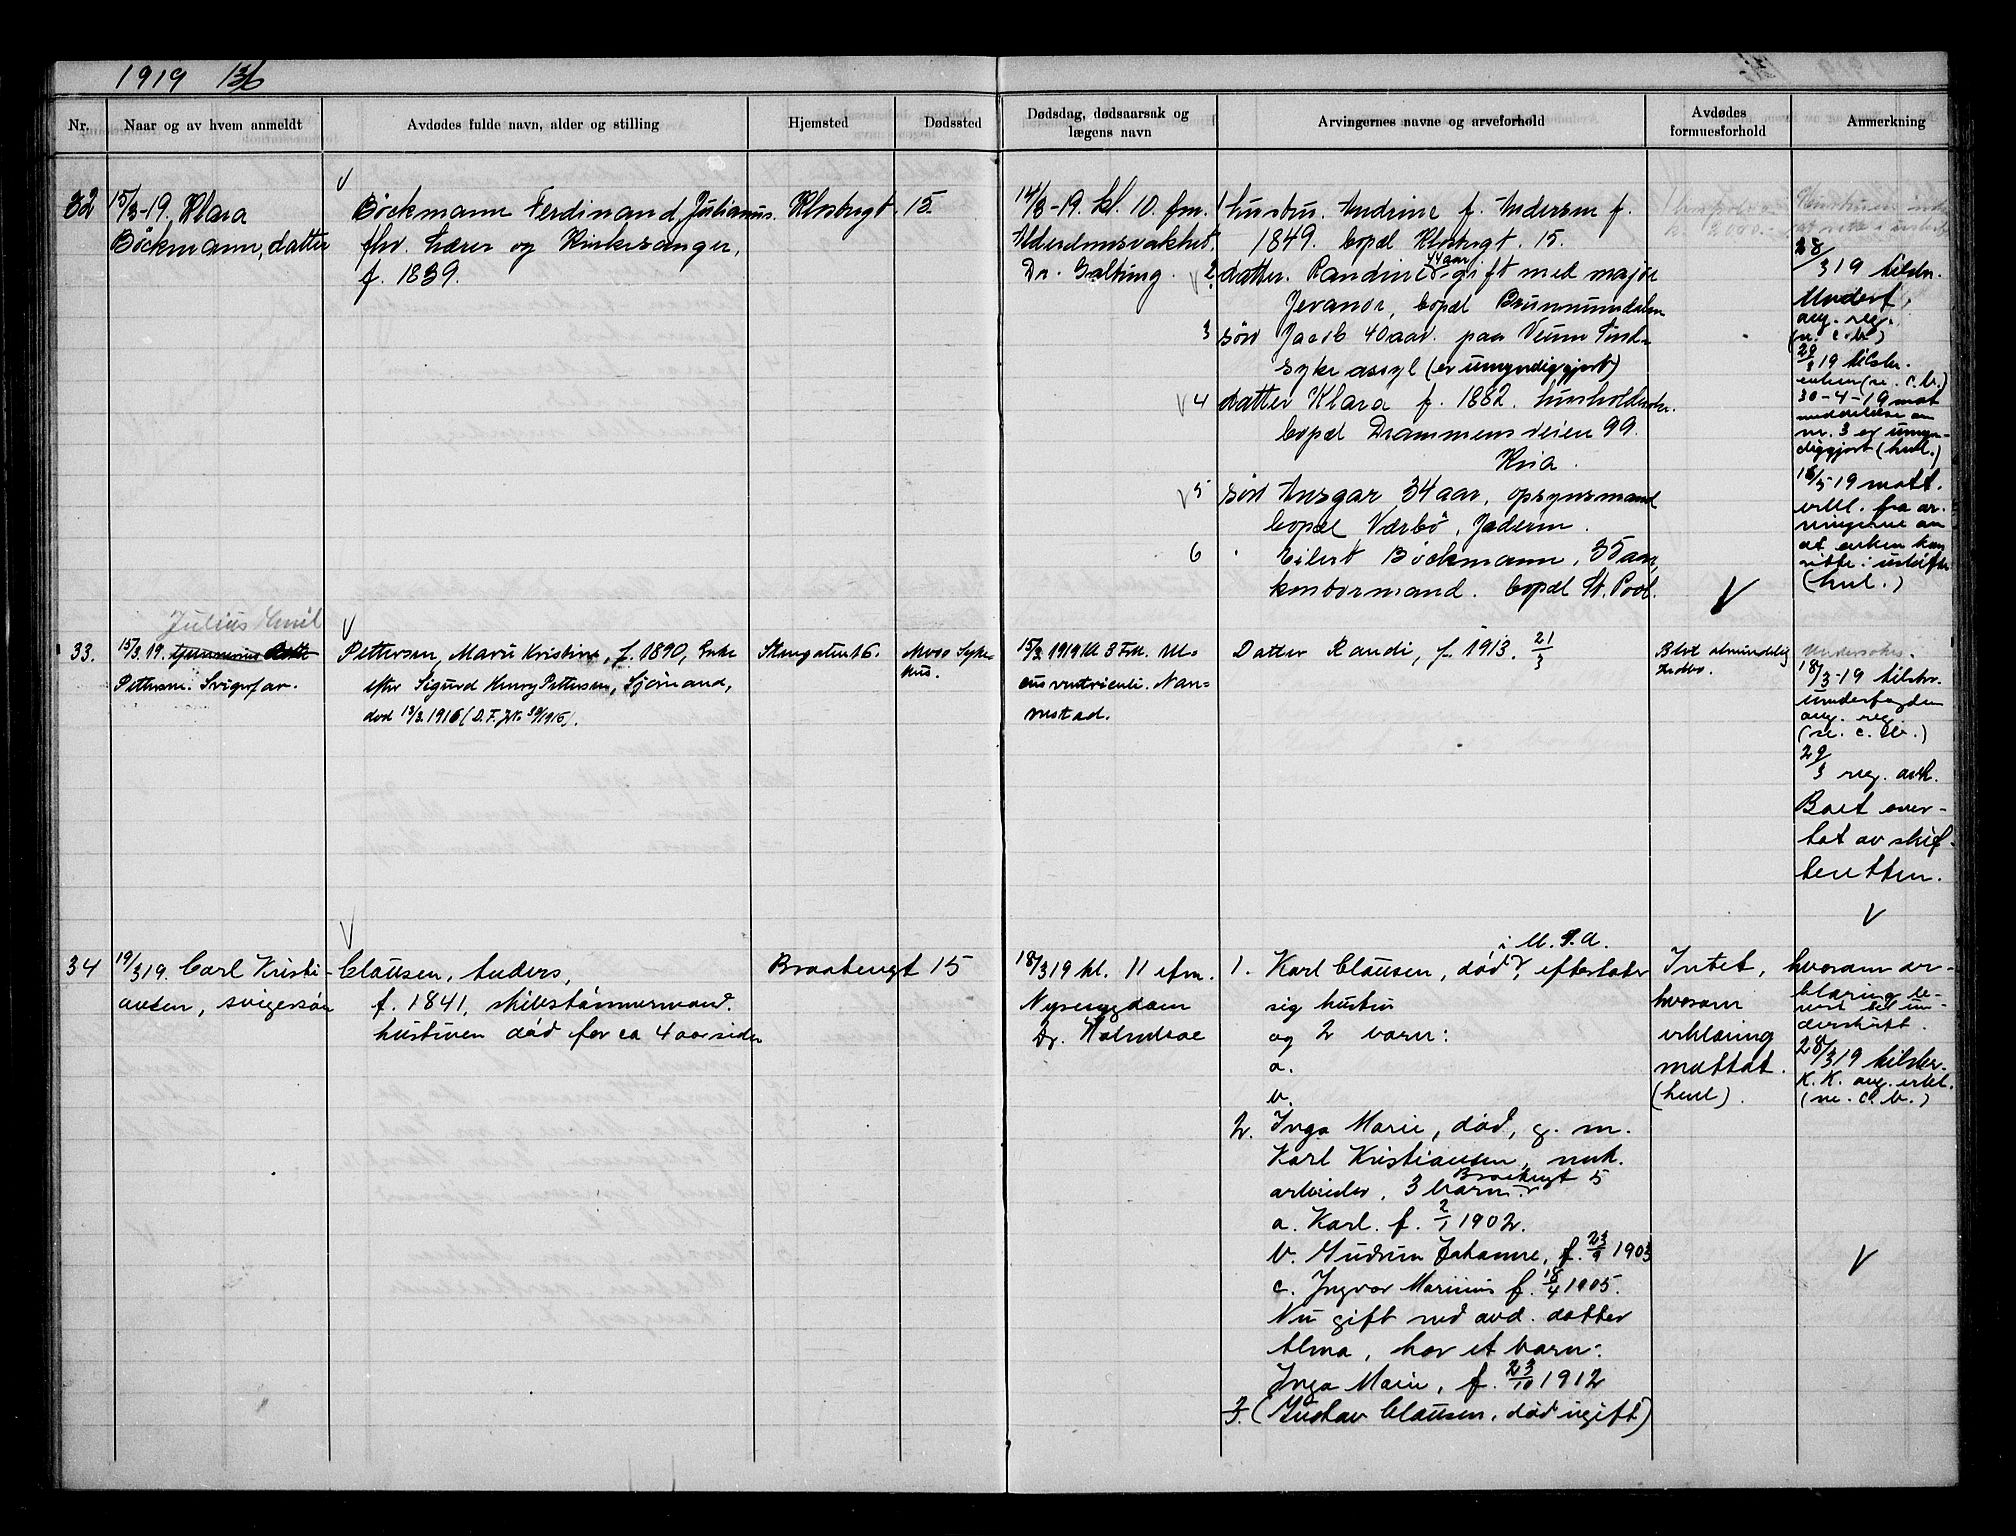 1919 136
Nr.
Naar og av hvem anmeldt
Avdødes fulde navn, alder og stilling
Hjemsted
Dødssted
Dødsdag, dødsaarsak og
lægens navn
Arvingernes navne og arveforhold
Avdødes
formuesforhold
Anmerkning
32
15/3-19. Klara
Böckmann, datter
Böckmann Ferdinand Julianus
fhv. Lærer og Kirkesanger,
f. 1839.
Klosbugt. 15.
14/3-19. kl. 10. fm.
Alderdomsvakhet.
Dr. Galtung.
1 hustru. Andrine f. Andersen f.
1849. bopæl Klosbugt. 15.
2. datter. Randine 44 aar gift med major
Jevanor, bopæl Brummundalen
3 søn Jacob 40 aar. paa Veum Sind-
syke assyl (er umyndiggjort)
4 datter Klara f. 1882. husholderske.
bopæl Drammensveien 99.
Kria.
5 søn Ansgar 34 aar, opsynsmand
bopæl Værbö, Jæderen.
6 " Eilert Böckmann, 35 aar,
kontormand. bopæl St. Pool.
28/3 19 tilskr.
Underf.
ang. reg.
(se. c. b.)
29/3 19 tilskr.
enken (se. c. b.)
30-4-19 mot
meddelelse om
nr. 3 er umyn-
diggjort (hul.)
16/5-19 mott.
erkl. fra ar-
vingerne om
at enken kan
sitte i uskifte
(hul.)
Julius Emil
33.
15/3.19.
Pettersen. Svigerfar.
Pettersen, Marie Kristine, f. 1890, Enke
efter Sigurd Henry Pettersen, Sjømand,
død 13/3.1916 (D.F. No 30/1916).
Stengaten 16.
Moss Syke
hus.
15/3 1919 Kl 3 Fm. Ul-
cus ventriculi. Nan-
nestad.
Datter Randi, f. 1913. 21/3
Blot almindelig
Indbo.
Undersøkes.
18/3-19 tilskr.
underfogden
ang. reg.
(se. c. b.)
29/3 reg. avh.
Boet over-
tat av skif-
teretten.
34
19/3 19. Carl Kristi-
ansen, svigersøn
Clausen, Anders,
f. 1841, skibstömmermand.
hustruen død for ca 4 aar siden
Braatengt 15
18/3 19 kl. 11 efm.
Nyresygdom
Dr. Holmboe
1. Karl Clausen, død? i U.S.A. efterlater
sig hustru
og 2 barn:
a.
b.
2. Inga Marie, død, g. m.
Karl Kristiansen, murh.
arbeider, Braatengt 5
3 barn:
a. Karl. f. 2/1 1902.
b. Gudrun Johanne, f. 23/9 1903
c. Ingvar Marinius f. 18/4 1905.
Nu gift med avd. datter
Alma, har et barn:
Inga Marie, f. 23/10 1912
3. (Gustav Clausen, død ugift)
Intet,
hvorom
erklæring
mottat.
(hul).
hvorom er-
klæring be-
ved til un-
derskrift.
28/3 19 tilskr.
K. K. ang. erkl.
(se. c. b.)